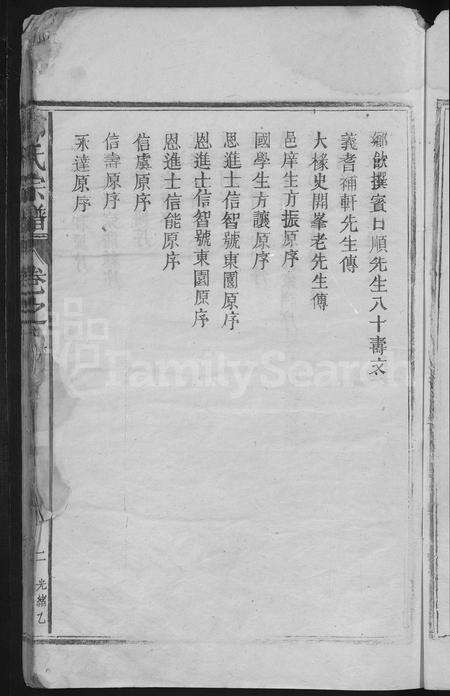 鄉飲撰賓日順先生八十壽文
義耆補軒先生傳
大椽史開峯老先生傳
邑庠生方振原序
國學生方讓原序
思進士信智號東園原序
恩進士信智號東園原序
恩進士信能原序
信虞原序
信壽原序
永達原序
氏宗譜
卷之
二
光緒乙
FamilySearch